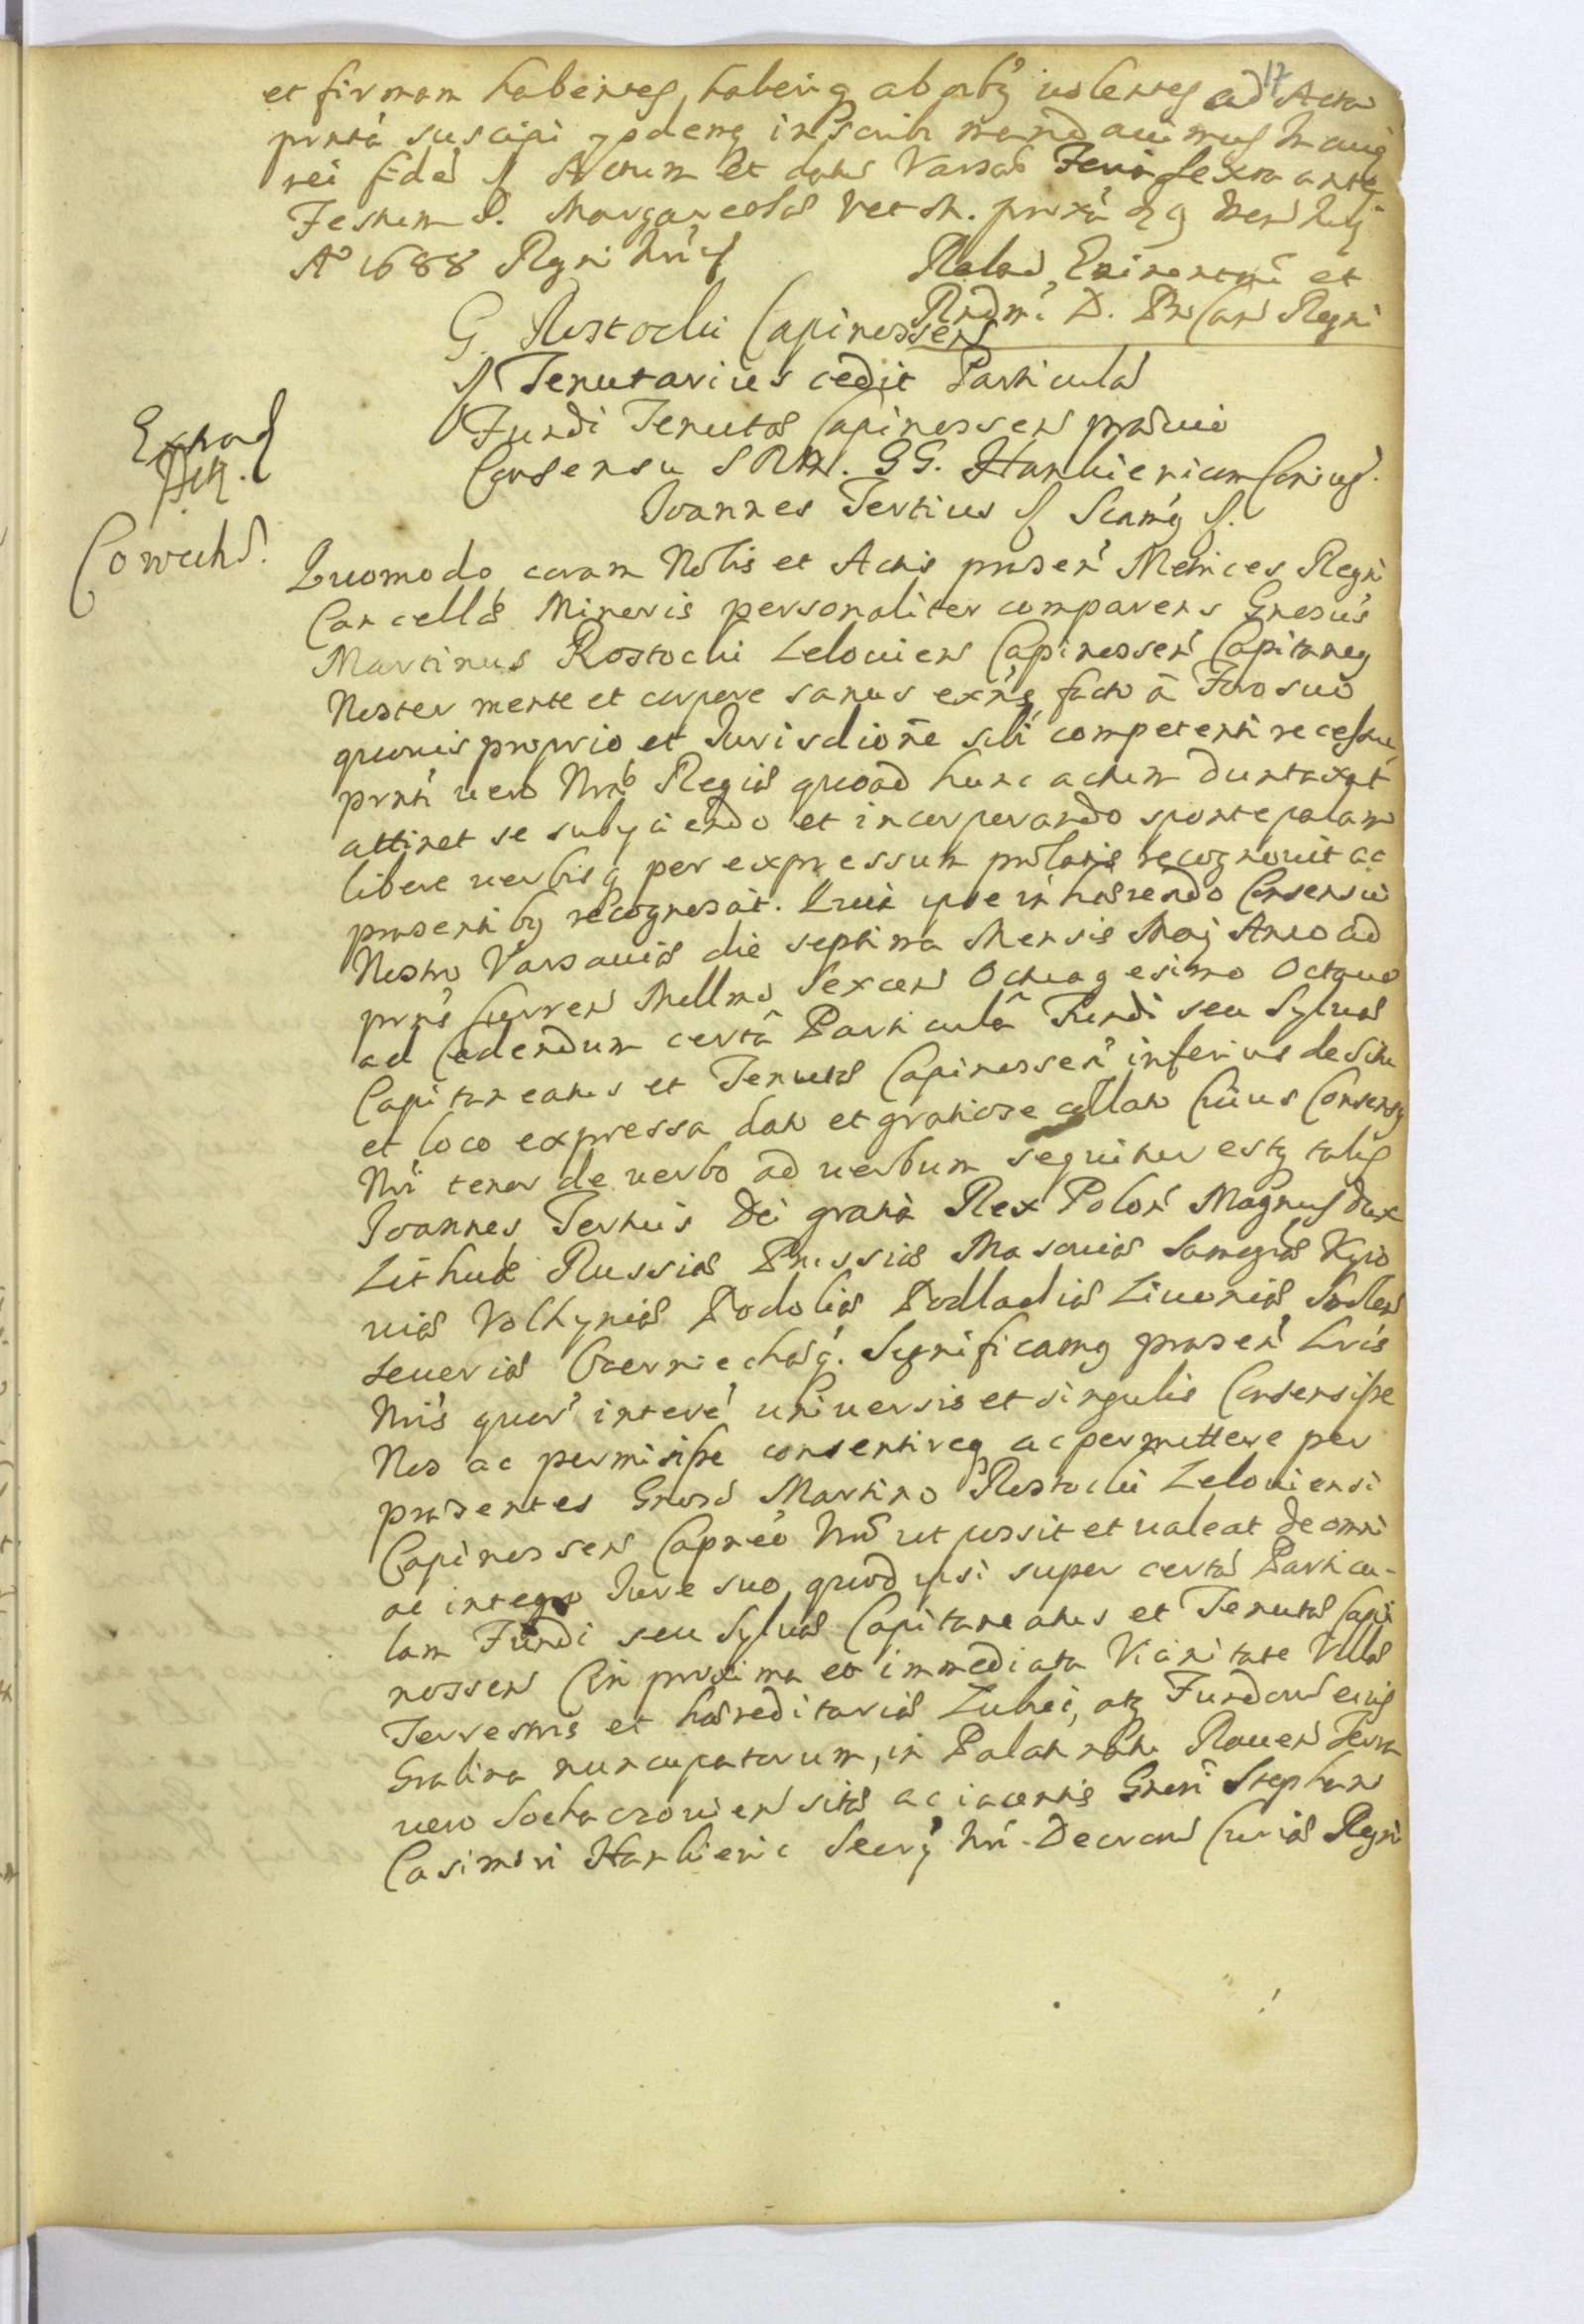 17
et firmam habentes, haberiq ab omnibq volentes ad Acta
prntá suscipi ydemq inscribi mandauimus In cuiq
rei fidé Actum et datu Varsao Feria sexta ante
Festum S. Margarethæ Vet M. proxá 9 Men Julij
Aº 1688 Regni Nri
Relao Eminentmi et
Rndmi D. Pro Can Regni
G. Rostocki Capinossen
Tenutarius cedit Particulæ
Fundi Tenutæ Capinossen præuio
Consensu S R M. GG. Hankieuicom Coniug.
Extrad
Cowecks.
Joannes Tertius Scimq
Quomodo coram Nobis et Actis præsen Metrices Regni
Cancellæ Minoris personaliter comparens Gnosus
Martinus Rostocki Zelouien Capinossen Capitaneq
Noster mente et corpore sanus exns, facto à Foro suo
quouis proprio et Jurisdione sibi competenti recessu
prnti uero Nræ Regiæ quoad hunc actum duntaxat
attinet se subyciendo et incorporando sponte palam
libere uerbisq per expressum prolatis recognouit ac
præsentibq recognoscit. Quia ipse inhærendo Consensui
Nostro Varsauiæ die septima Mensis Maij Anno ad
prns Curren Mellmo Sexcen Octuagesimo Octauo
ad Cedendum certâ Particulâ Fundi seu Syluæ
Capitaneatus et Tenutæ Capinossen inferius de Situ
et loco expressa dato et gratiose collato Cuius Consensq
Nri tenor de uerbo ad uerbum sequitur estq talis
Joannes Tertius Dei gratia Rex Polon Magnus Dux
Lithuæ Russiæ Prussiæ Masouiæ Samogæ Kyio
uiæ Volhyniæ Podoliæ Podlachiæ Liuoniæ Smolen
Seueriæ Czerniechæq. Significamq præsen Lris
Nris quor interé uniuersis et singulis Consensisse
Nos ac permisisse consentireq ac permittere per
præsentes Gnoso Martino Rostocki Zelouiensi
Capinossen Capneo Nro ut possit et ualeat de omni
ac integro Jure suo, quod ipsi super certa Particu-
lam Fundi seu Syluæ Capitaneatus et Tenutæ Capi
nossen in proxima et immediata Vicinitate Villæ
Terrestris et hæreditariæ Zubri, atq Fundorum eius
Gralina nuncupatorum, in Palatnatu Rauen Terra
uero Sochaczouien sitæ ac iacentis Gnosi Stephani
Casimiri Hankieuic Secrq Nri Decretor Curiæ Regni